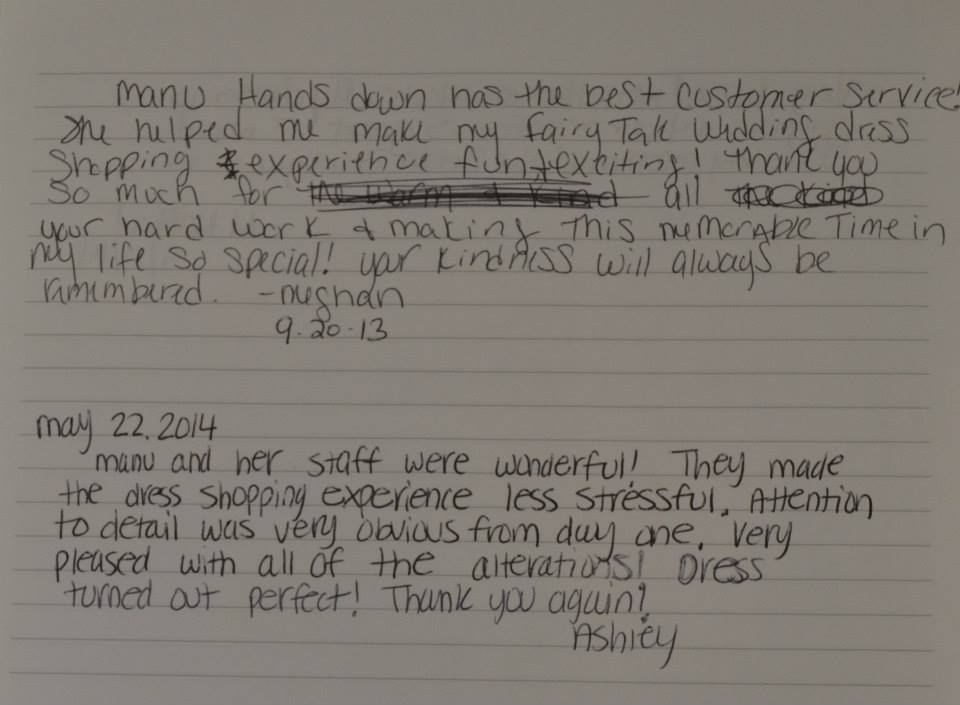 manu Hands down has the best customer service!
She helped me make my fairy Tale wedding dress
Shopping experience fun & exciting! Thank you
So much for the warm & kind all
your hard work & making this memorable Time in
my life so special! your kindness will always be
remembered. -meghan
9.20.13
may 22.2014
manu and her staff were wonderful! They made
the dress shopping experience less stressful. Attention
to detail was very obvious from day one. very
pleased with all of the alterations! Dress
turned out perfect! Thank you again!
Ashley